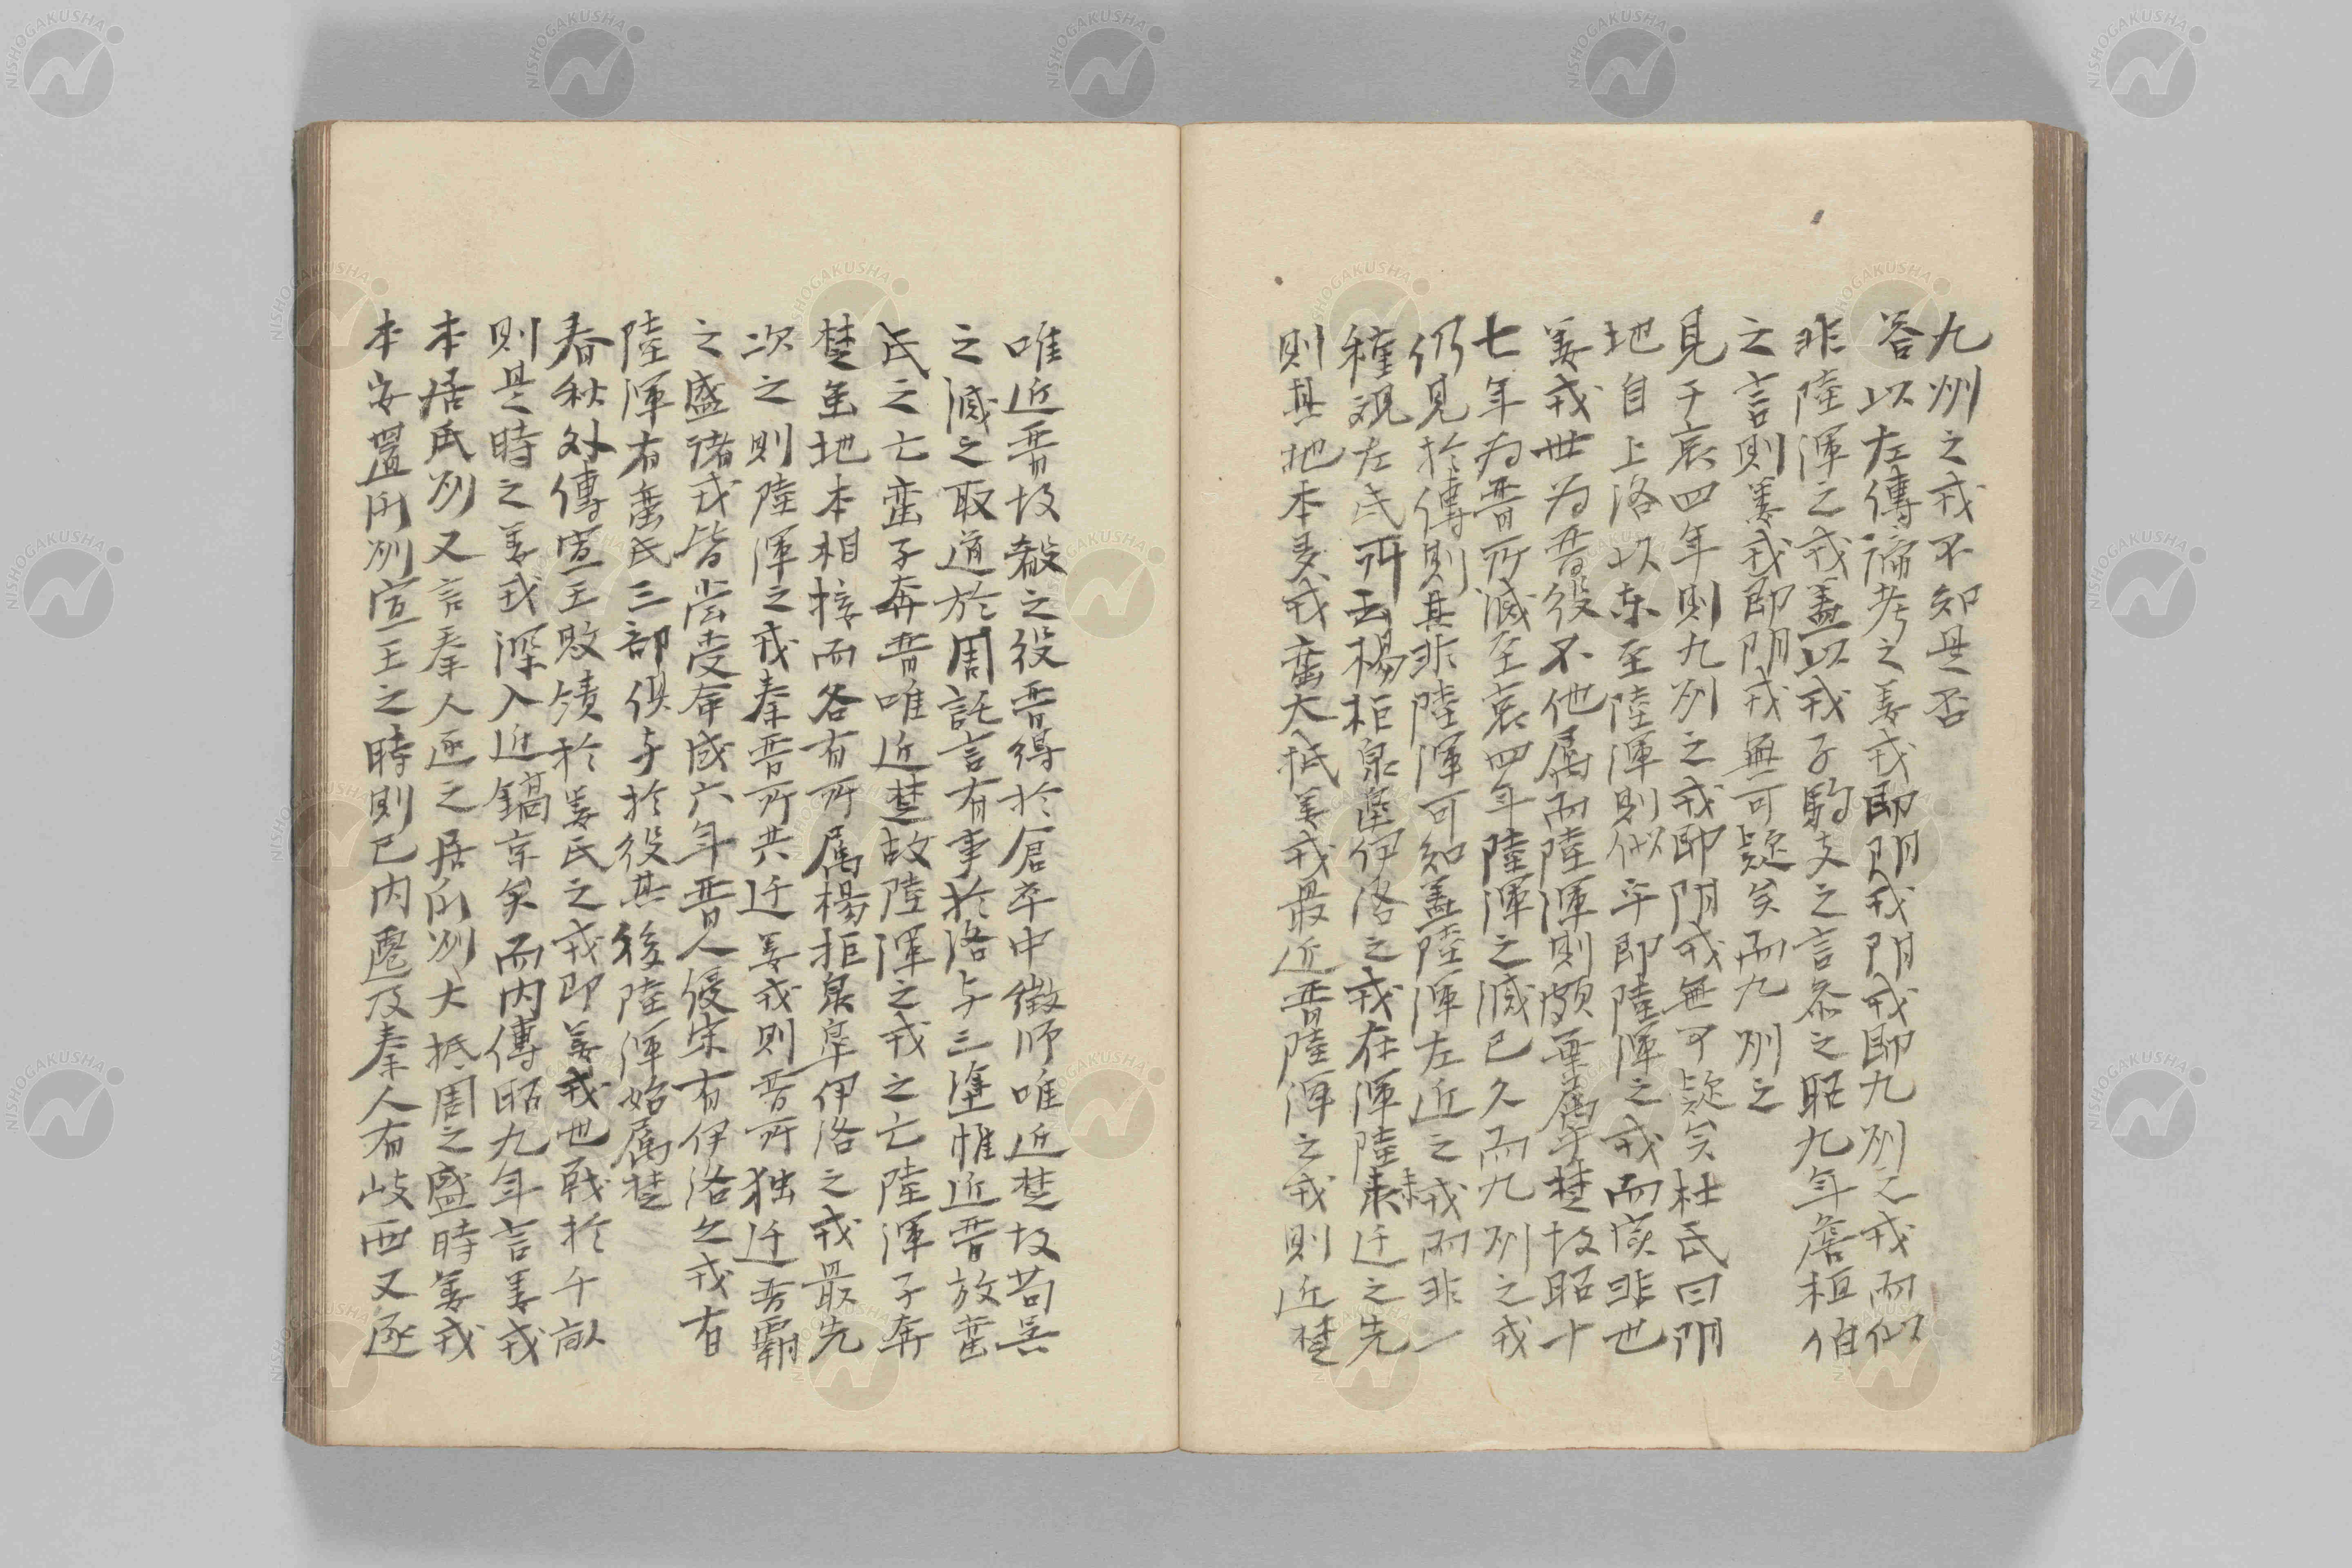 九州之戎不知是否
答以左傳諦考之姜戎即陰戎陰戎即九州之戎而似
非陸渾之戎蓋以戎子駒支之言參之昭九年詹桓伯
之言則姜戎即陰戎無可疑矣而九州之
見于哀四年則九州之戎即陰戎無可疑矣杜氏曰陰
地自上洛以东至陸渾則似乎即陸渾之戎而實非也
姜戎世为晋役不他属而陸渾則頗兼属乎楚故昭十
七年为晋所滅至哀四年陸渾之滅已久而九州之戎
仍見於傳則其非陸渾可知蓋陸渾左近之戎而非一
種観左氏所云楊柜泉皐伊洛之戎在渾陸未迁之先
則其地本多戎蛮大抵姜戎最近晋陸渾之戎則近楚
唯近晋故殽之役晋得於倉卒中徴师唯近楚故苟吴
之滅之取道於周託言有事於洛与三塗惟近晋故蛮
氏之亡蛮子奔晋唯近楚故陸渾之戎之亡陸渾子奔
楚至地本相接而各有所属楊拒泉皐伊洛之戎最先
次之則陸渾之戎秦晋所共迁姜戎則晋所独迁晋霸
之盛諸戎皆尝受命成六年晋人侵宋有伊洛之戎有
陸渾有蛮氏三部俱与於役其後陸渾始属楚
春秋外傳宣王敗績於姜氏之戎即姜戎也戰於千畝
則是時之姜戎深入近鎬京矣而内傳昭九年言姜戎
本居瓜州又言秦人逐之居瓜州大抵周之盛時姜戎
本安置瓜州宣王之時則已内遷及秦人有岐西又逐